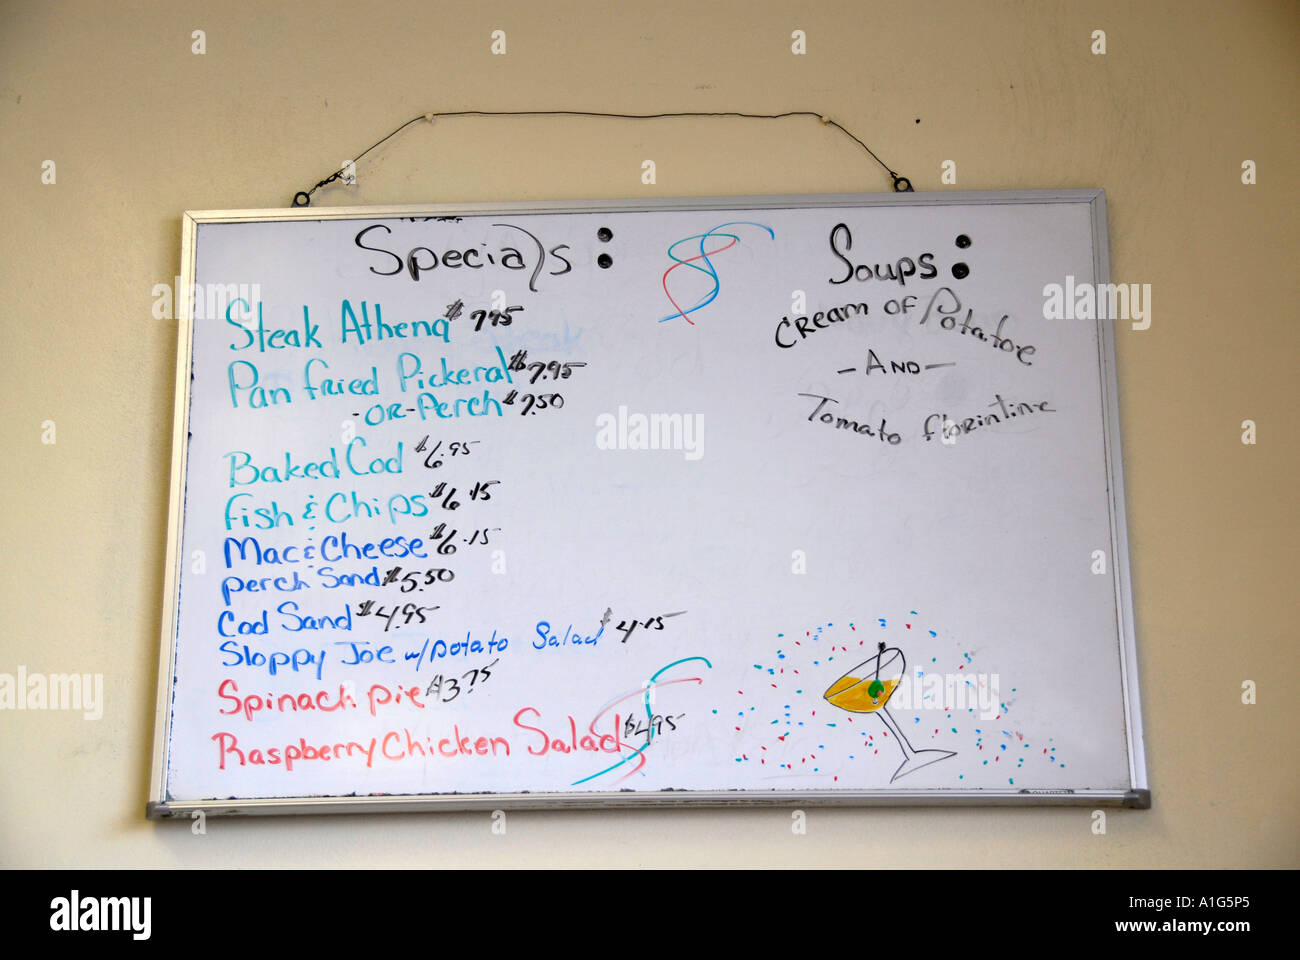 Specials:
Steak Athena $7.95
Pan fried Pickeral $7.95
-OR-Perch $7.50
Baked Cod $6.95
fish & Chips $6.15
Mac & Cheese $6.15
perch Sand $5.50
Cod Sand $4.95
Sloppy Joe w/potato Salad $4.15
Spinach pie $3.75
Raspberry Chicken Salad $4.95
Soups:
Cream of Potatoe
- AND -
Tomato florintine
alamy
alamy
alamy
alamy
Image ID: A1G5P5
www.alamy.com